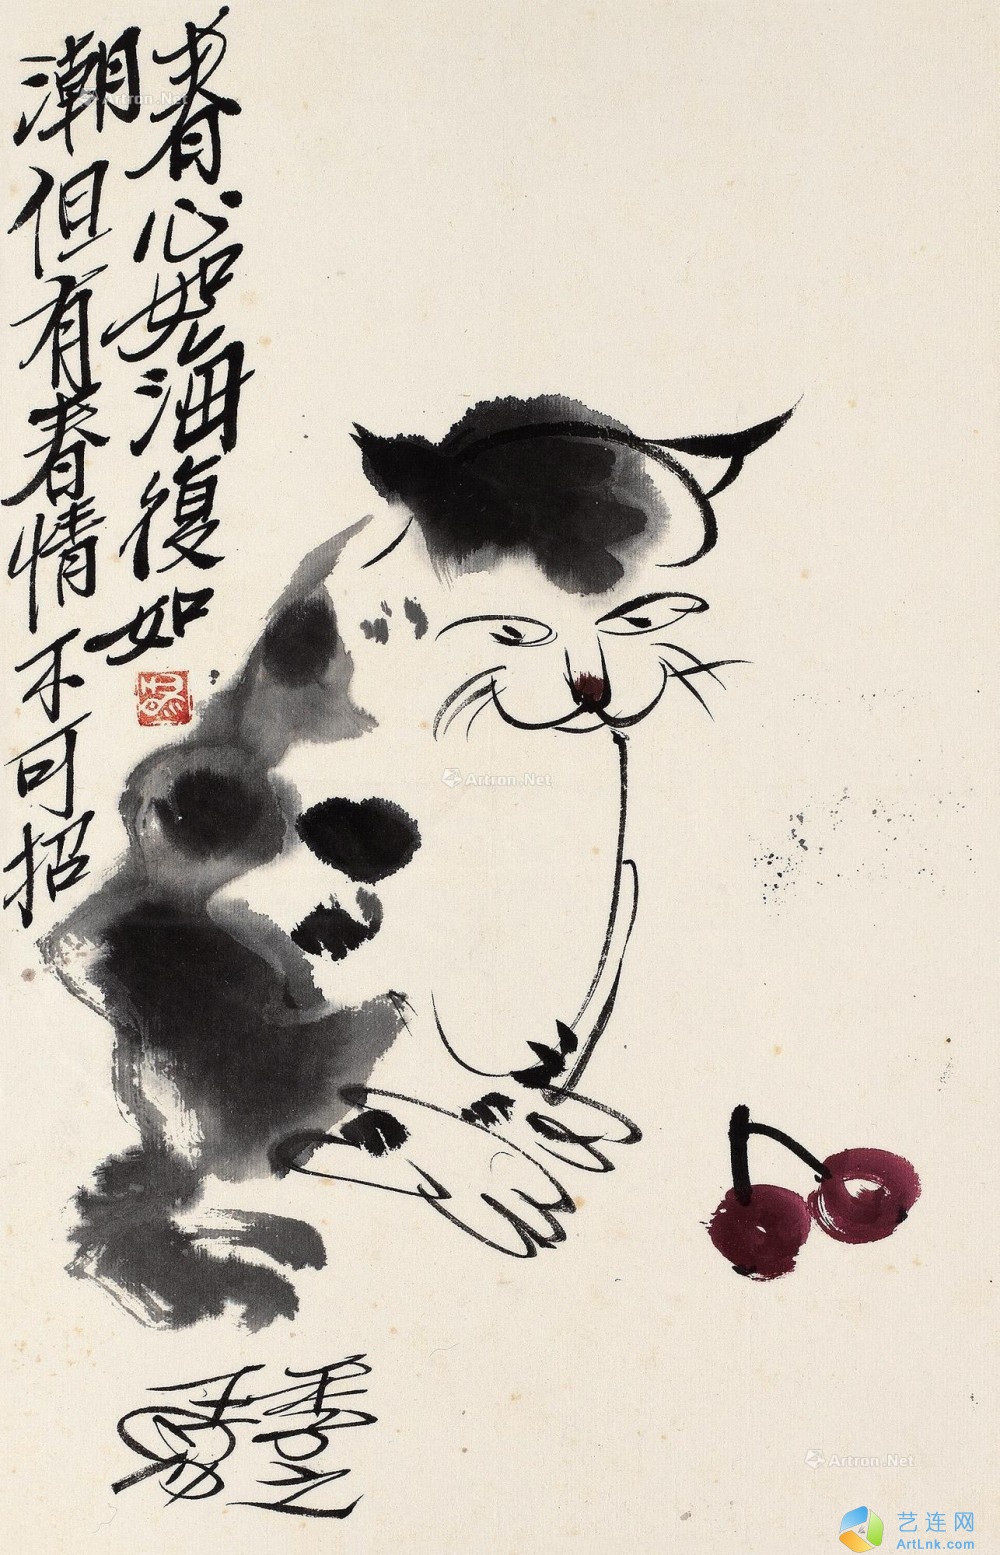 春心如海復如
潮但有春情不可招
Artron.Net
Artron.Net
Artron.Net
艺连网
ArtLnk.com